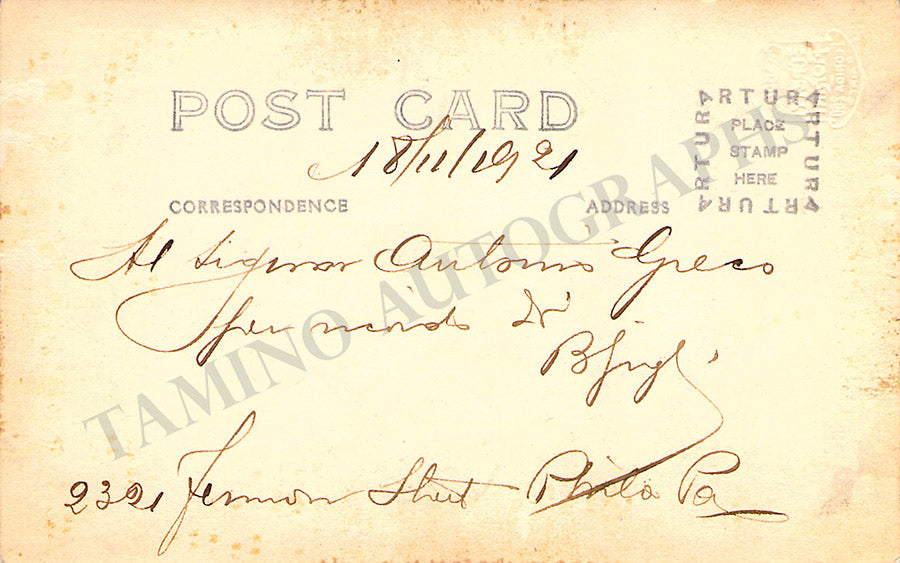 POST CARD
18/11/1921
CORRESPONDENCE
ADDRESS
ARTURA
ARTURA
ARTURA
ARTURA
PLACE
STAMP
HERE
Al Signor Antonio Greco
per ricordo di
B
2321 Street Phila Pa
TAMINO AUTOGRAPHS